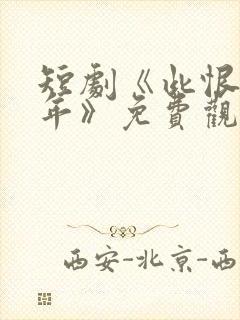 短劇《此恨
年》免費觀
西安-北京-西